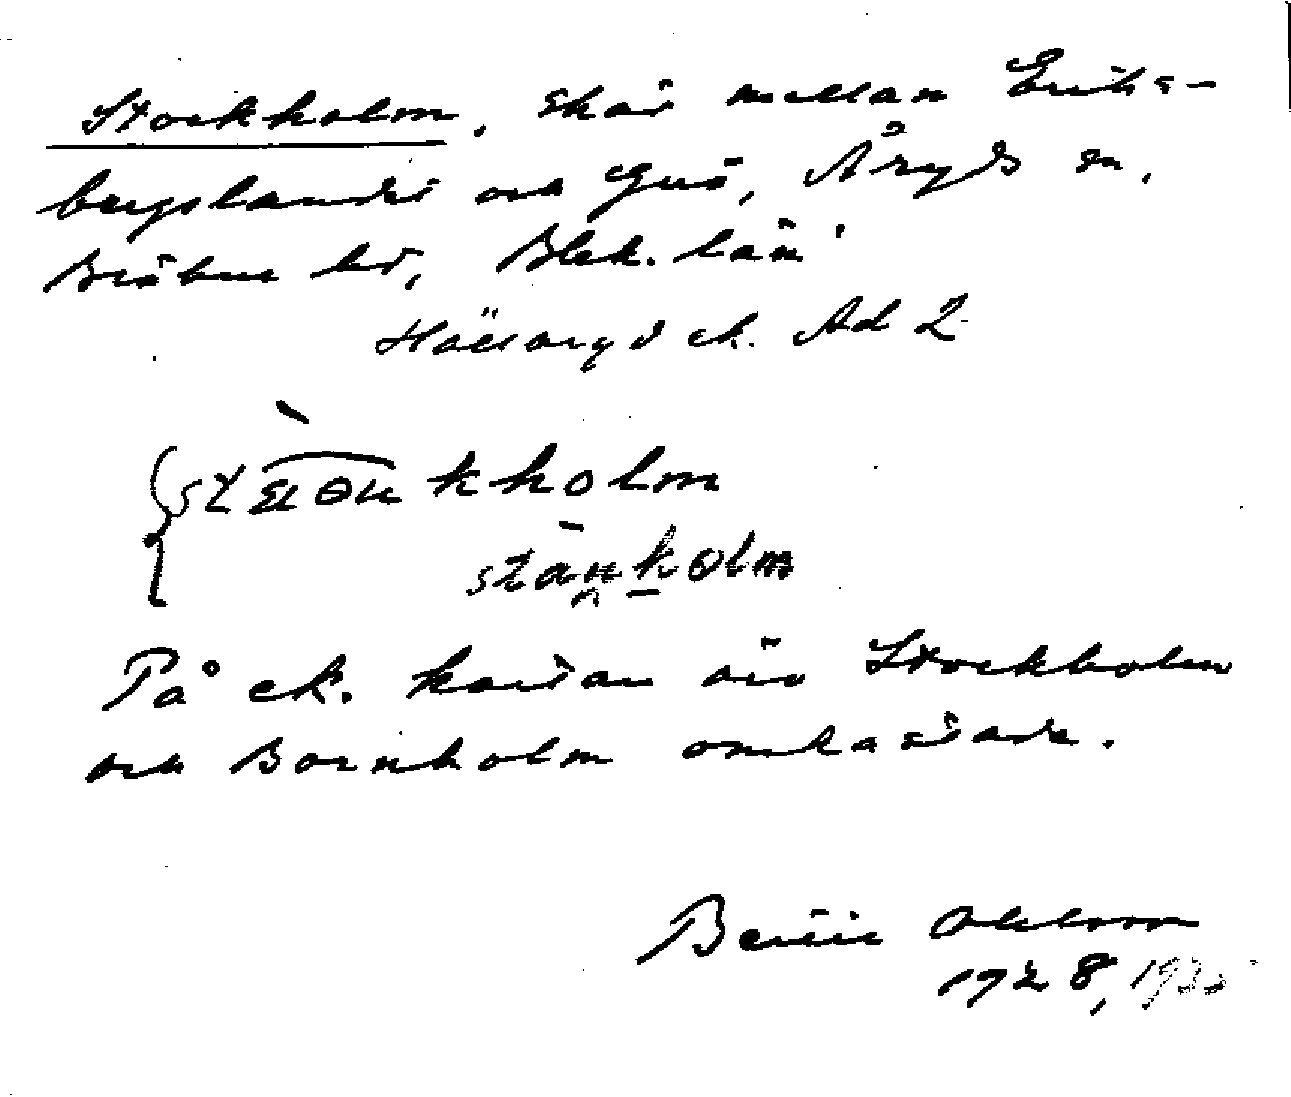 Stockholm, skär mellan Eriks-
bergslandet och Guö, Åryds sn,
Bräkne hd, Blek. län
Hällaryd ek. Ad 2
kholm
stånkolm
På ek. kartan är Stockholm
och Bornholm omkastade.
Bertil Ohlsson
1928, 1935